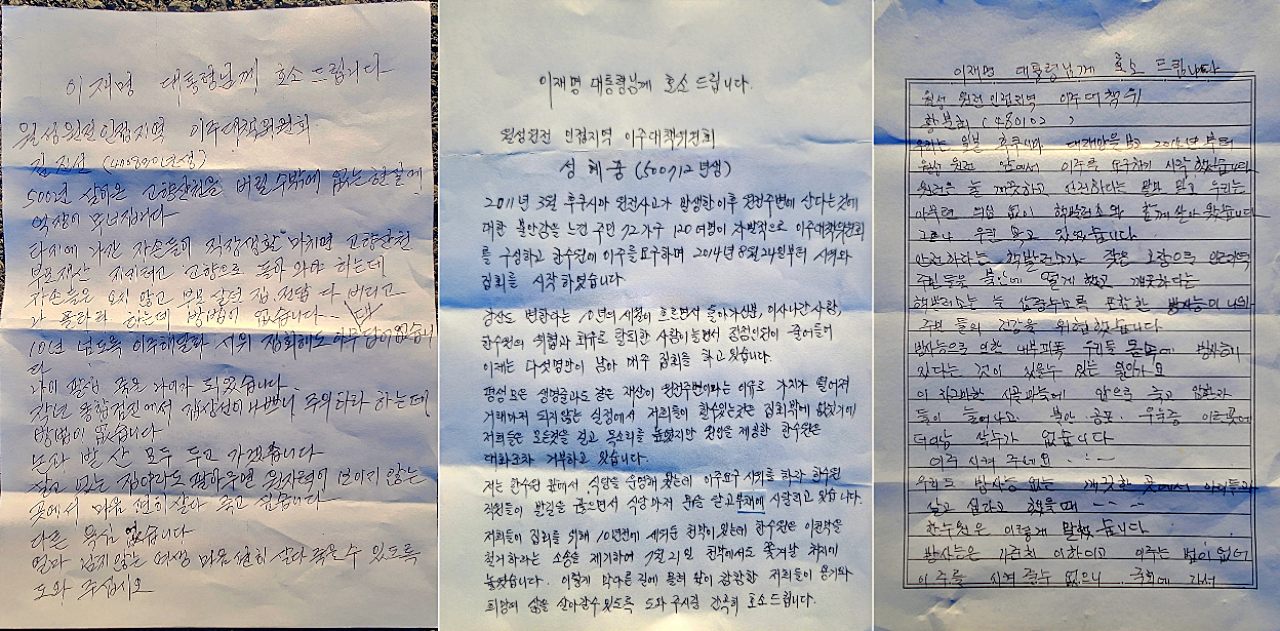 이재명 대통령님께 호소 드립니다
월성원전인접지역 이주대책위원회
김진선 (400830년생)
500년 살아온 고향산천을 버릴수밖에 없는현실에
억장이 무너집니다
타지에 가간 자손들이 직장생활 마치면 고향산천
부모재산 지키려고 고향으로 돌아와야 하는데
자손들은 오지 않고 부모 살던 집 전답 다 버리고
라 하는데 방법이 없습니다
10년 넘도록 이주해달라 시위 집회해도 아무 답이 없습니
다
나이 팔십 죽을 나이가 되었습니다.
작년 종합검진에서 갑상선이 나쁘니 주의하라 하는데
방법이 없습니다
논과 밭 산 모두 두고 가겠습니다
살고 있는 집이라도 팔아주면 원자력이 보이지 않는
곳에서 마음 편히 살다 죽고 싶습니다
다른 욕심 없습니다
얼마 남지않는 여생 마음 편히 살다 죽을수 있도록
도와 주십시오
이재명 대통령님께 호소 드립니다.
월성원전 인접지역 이주대책위원회
성혜중 (500712년생)
2011년 3월 후쿠시마 원전사고가 발생한이후 원전주변에 산다는것에
대한 불안감을 느낀 주민 72가구 120여명이 자발적으로 이주대책위원회
를 구성하고 한수원에 이주를요구하며 2014년 8월24일부터 시위와
집회를 시작하였습니다.
강산도 변한다는 10년의 세월이 흐르면서 돌아가신분, 이사나간사람,
한수원의 위협과 회유로 탈퇴한 사람이늘면서 집회인원이 줄어들어
이제는 다섯명만이 남아 매주 집회를 하고있습니다.
평생모은 생명줄과도 같은 재산이 원전주변이라는 이유로 가치가 떨어져
거래마저 되지않는 실정에서 저희들이 할수있는것은 집회밖에 없었기에
저희들은 모든것을 걸고 목소리를 높였지만 원인을 제공한 한수원은
대화조차 거부하고 있습니다.
저는 한수원 앞에서 식당을 운영해 왔는데 이주요구 시위를 하자 한수원
직원들이 발길을 끊으면서 식당마저 문을 닫고 부채에 시달리고 있습니다.
저희들이 집회를 위해 10년전에 세워둔 천막이있는데 한수원은 이천막을
철거하라는 소송을 제기하여 7월21일 천막에서도 쫓겨날 처지에
놓였습니다. 이렇게 막다른 길에 몰려 앞이 캄캄한 저희들이 용기와
희망에 삶을 살아갈수있도록 도와 주시길 간곡히 호소드립니다.
이재명 대통령님께 호소 드립니다
월성 원전인접지역 이주대책위
황분희 (480102)
우리는 일본 후쿠시마 대재앙을 보고 2014년 부터
월성 원전 앞에서 이주를 요구하기 시작 했습니다
원전은 늘 깨끗하고 안전하다는 말만 믿고 우리는
아무런 의심 없이 핵발전소와 함께 살아 왔습니다
그러나 우린 속고 있었습니다
안전하다는 핵발전소가 잦은 고장으로 인근지역
주민들을 불안에 떨게 했고 깨끗하다는
핵발전소는 늘 삼중수소를 포함한 방사능이 나와
주민 들의 건강을 위협했습니다
방사능으로 인한 내부피폭 우리들 몸속에 방사능이
있다는 것이 있을수 있는 일인가요
이 조그마한 시골마을에 암으로 죽고 암환자
들이 늘어나고 불안 공포 우울증 이곳에
더이상 살수가 없습니다
이주 시켜 주세요
우리도 방사능 없는 깨끗한 곳에서 아이들과
살고 싶다고 했을때
한수원은 이렇게 말했습니다
방사능은 기준치 이하이고 이주는 법이 없어
이주를 시켜 줄수 없으니 국회에 가서